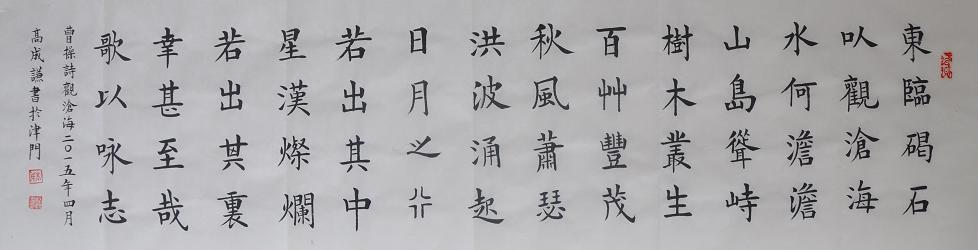 東臨碣石
以觀滄海
水何澹澹
山島聳峙
樹木叢生
百艸豐茂
秋風蕭瑟
洪波涌起
日月之行
若出其中
星漢燦爛
若出其裏
幸甚至哉
歌以咏志
曹操詩觀滄海二〇一五年四月
高成謙書於津門